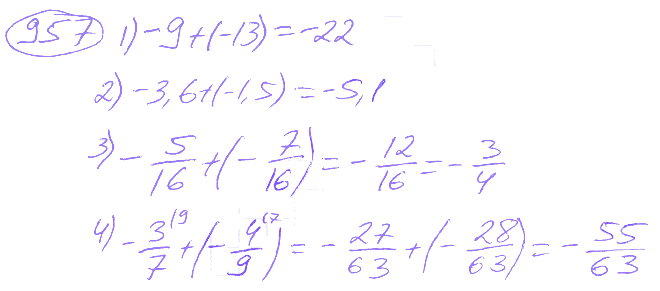 957 1) -9+(-13)=-22
2) -3,6+(-1,5)=-5,1
3) -5/16+(-7/16)=-12/16=-3/4
4) -3/7^{(9}+(-4/9^{(7})=-27/63+(-28/63)=-55/63